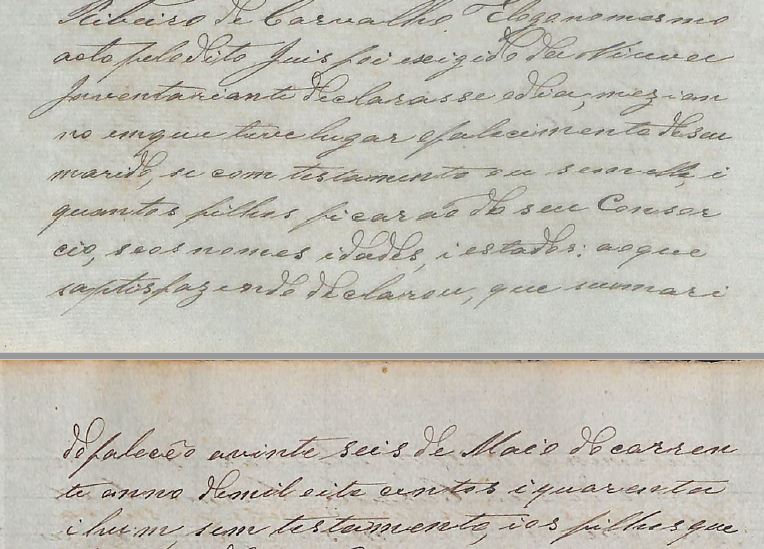 Ribeiro de Carvalho. E logo no mesmo
acto pelo dito Juis foi exigido da Viuva e
Inventariante declarasse o dia, mez i an
no em que teve lugar o falecimento de seu
marido, se com testamento ou sem elle, i
quantos filhos ficarão do seu Consor
cio, seos nomes idades, i estados: ao que
saptisfazendo declarou, que seu mari
do faleceo a vinte seis de Maio do corren
te anno de mil oito centos i quarenta
i hum, sem testamento, i os filhos que